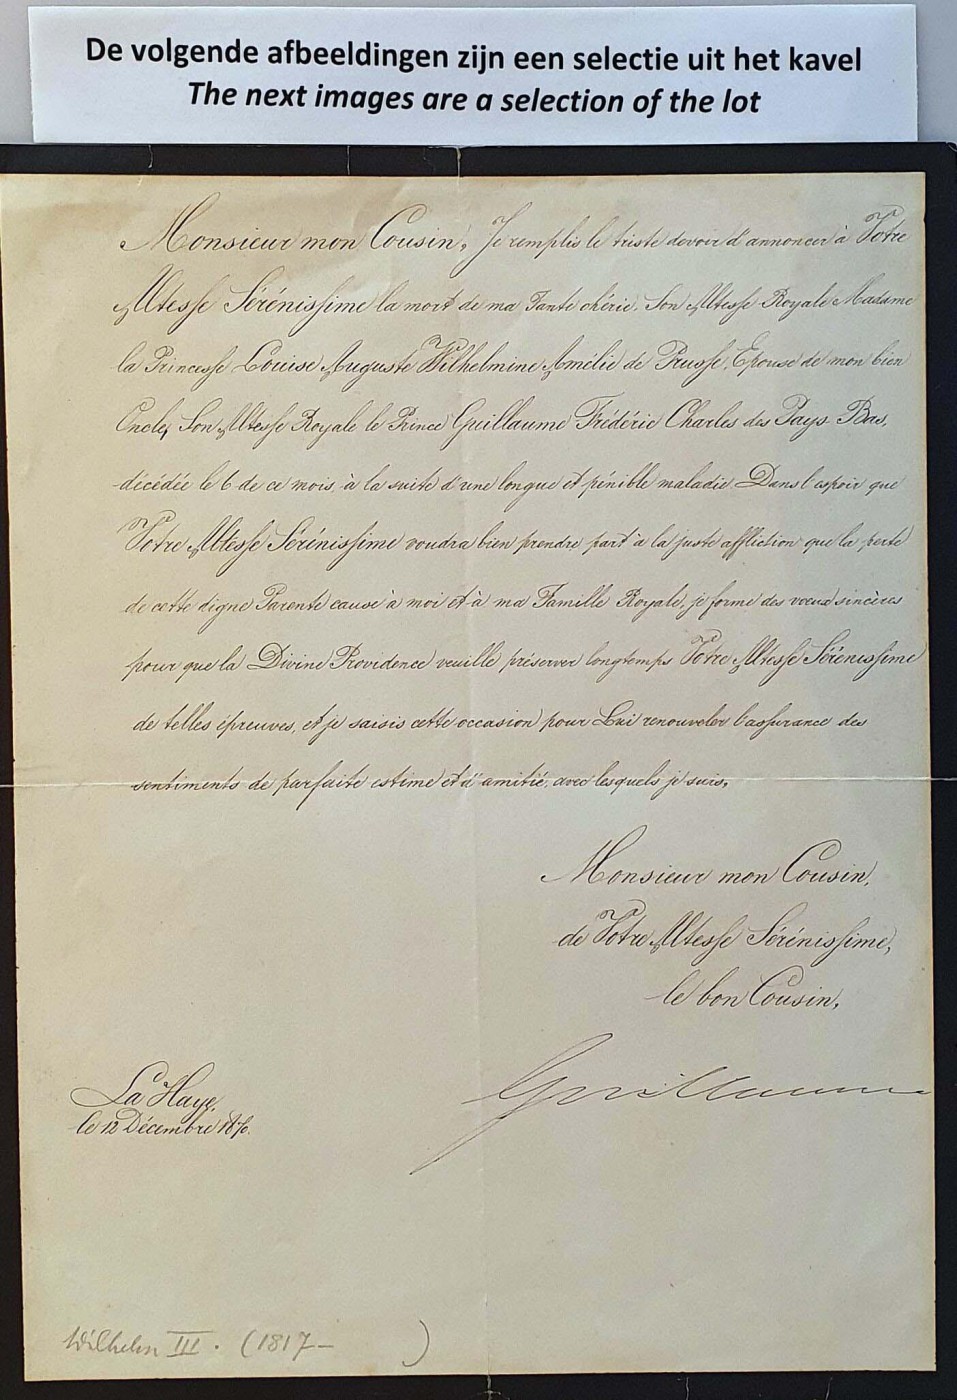 De volgende afbeeldingen zijn een selectie uit het kavel
The next images are a selection of the lot
Monsieur mon Cousin, Je remplis le triste devoir d'annoncer à Votre
Altesse Sérénissime la mort de ma Tante chérie, Son Altesse Royale Madame
la Princesse Louise Auguste Wilhelmine Amélie de Prusse, Epouse de mon bien
Oncle, Son Altesse Royale le Prince Guillaume Frédéric Charles des Pays-Bas,
décédée le 6 de ce mois, à la suite d'une longue et pénible maladie. Dans l'espoir que
Votre Altesse Sérénissime voudra bien prendre part à la juste affliction que la perte
de cette digne Parente cause à moi et à ma Famille Royale, je forme des voeux sincères
pour que la Divine Providence veuille préserver longtemps Votre Altesse Sérénissime
de telles épreuves, et je saisis cette occasion pour Lui renouveler l'assurance des
sentiments de parfaite estime et d'amitié, avec lesquels je suis,
Monsieur mon Cousin,
de Votre Altesse Sérénissime,
le bon Cousin,
Guillaume
La Haye,
le 12 Décembre 1870.
Wilhelm III. (1817- )